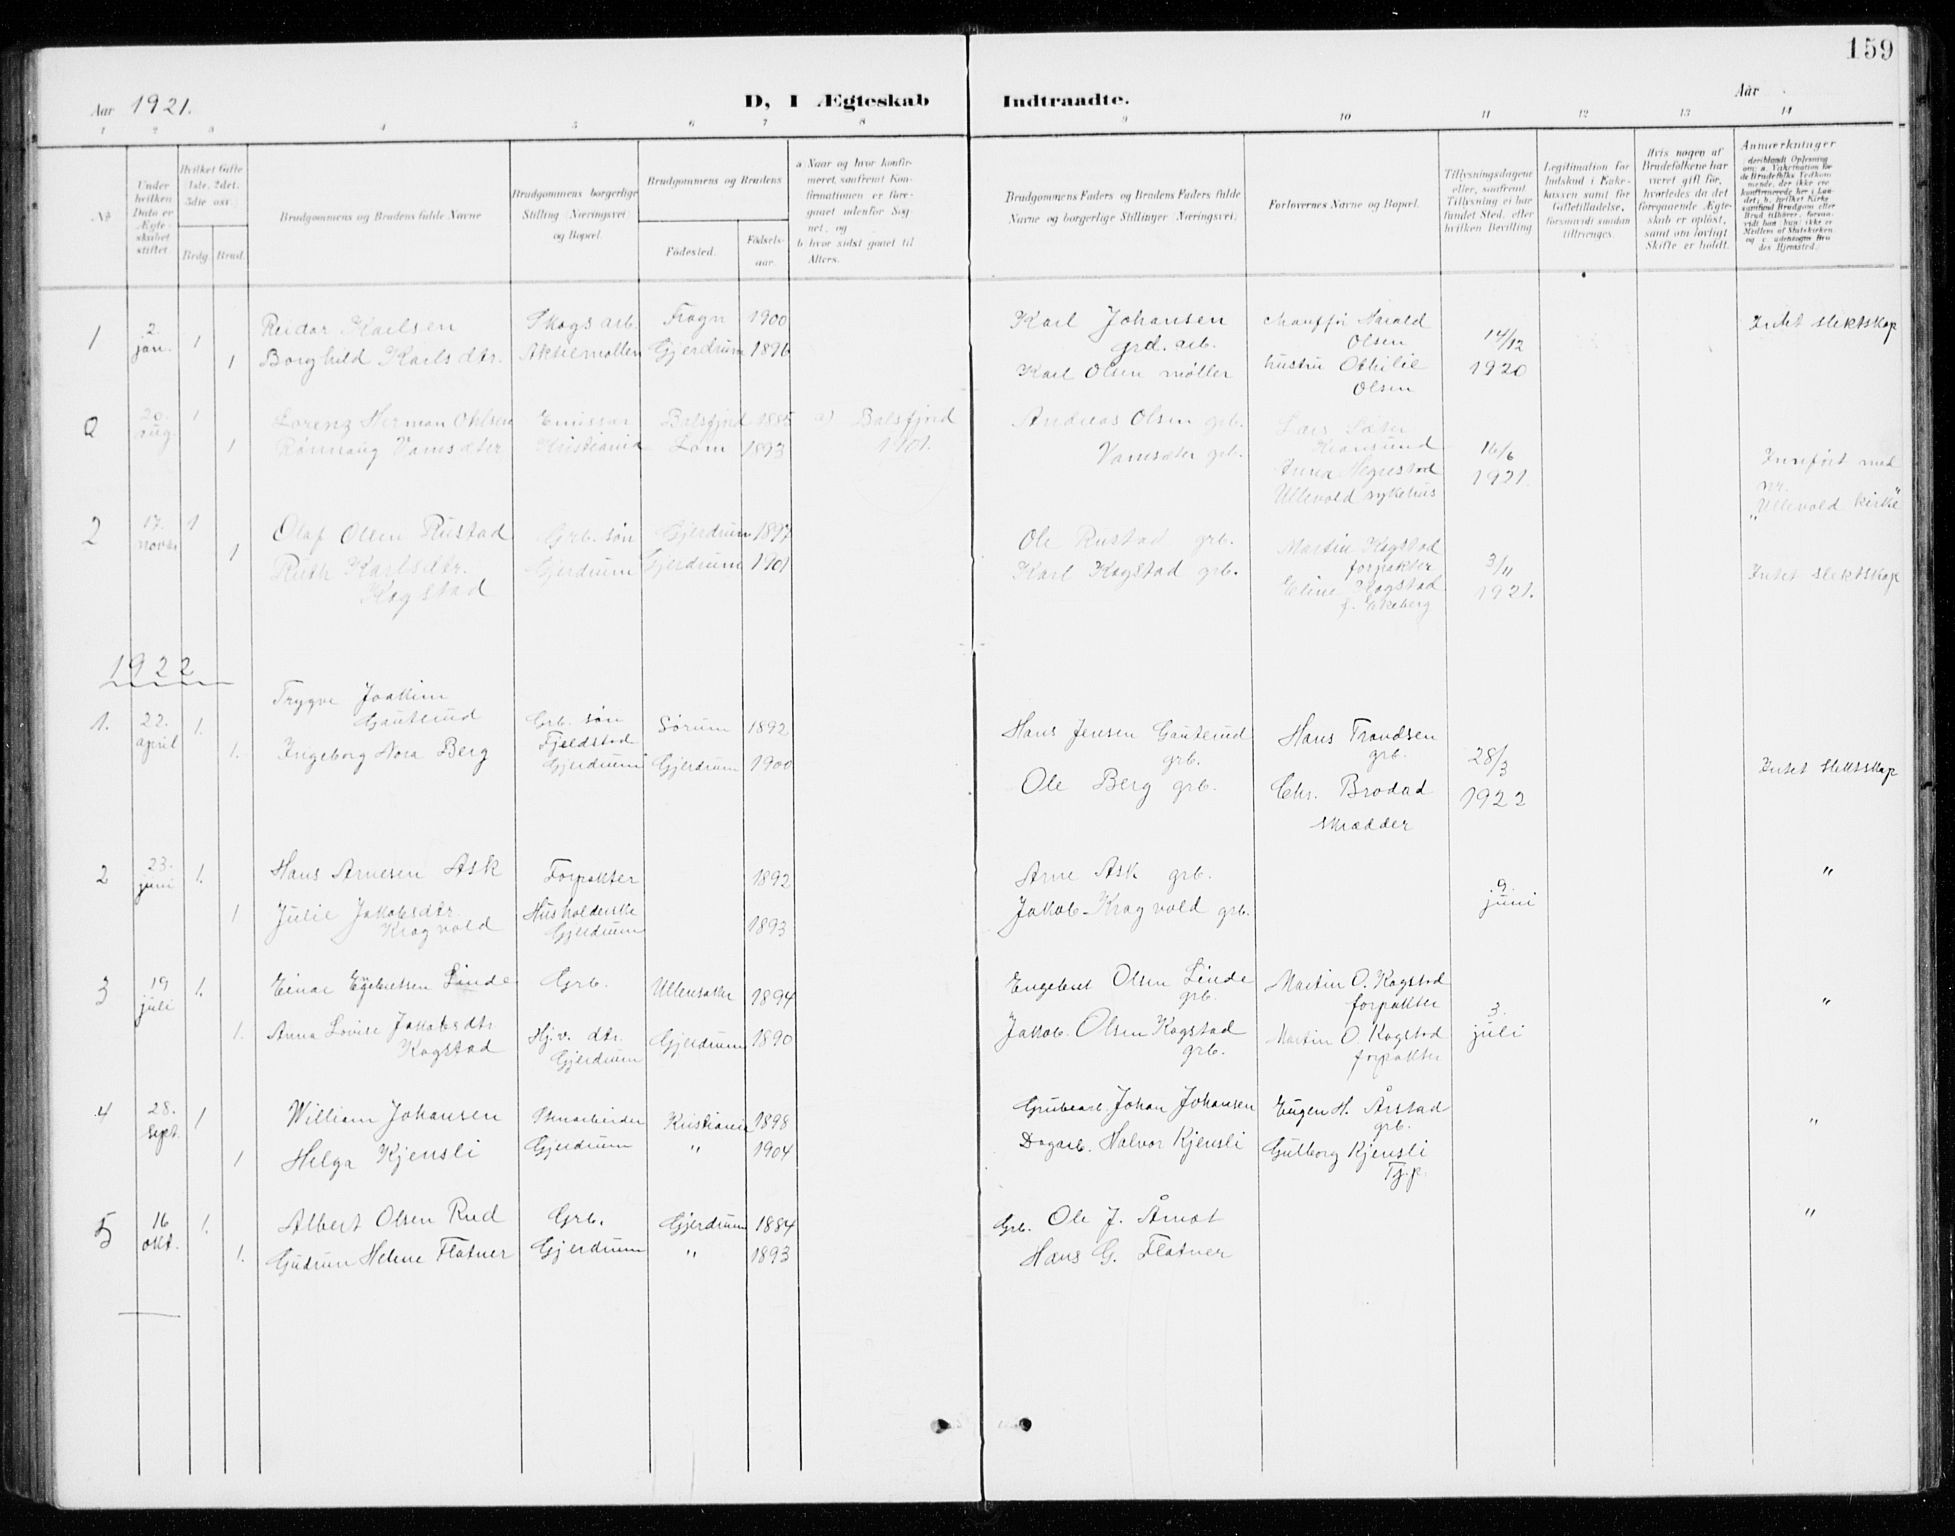 159
Aar 1921.
D, I Ægteskab Indtraadte.
Aar
1 2 3 4 5 6 7 8 9 10 11 12 13 14
No.
Under hvilken Dato er Ægteskabet stiftet.
Hvilket Gifte 1ste, 2det, 3die osv.
Brdg. Brud.
Brudgommens og Brudens fulde Navne
Brudgommens borgerlige Stilling (Næringsvei) og Bopæl.
Brudgommens og Brudens
Fødested.
Fødselsaar.
a Naar og hvor konfirmeret, samfremt Konfirmationen er foregaaet udenfor Sognet, og
b hvor sidst gaaet til Alters.
Brudgommens Faders og Brudens Faders fulde Navne og borgerlige Stillinger (Næringsvei).
Forlovernes Navne og Bopæl.
Tillysningsdagene eller, saafremt Tillysning ei har fundet Sted, efter hvilken Bevilling
Legitimation for Indskud i Enkekassen samt for Giftetilladelse, forsaavidt saadan tiltrænges.
Hvis nogen af Brudefolkene har været gift før, hvorledes da det foregaaende Ægteskab er opløst, samt om lovligt Skifte er holdt.
Anmærkninger
1 2. jan. 1 Reidar Karlsen Skogsarb. Frogn 1900 Karl Johansen grd. arb. Chauffør Harald Olsen 14/12 Intet slektskap
1 Borghild Karlsdtr. Aktiemøllen Gjerdrum 1896 Karl Olsen møller hustru Othilie Olsen 1920
0 20. aug. 1 Lorenz Herman Ohlsen Emissær Balsfjord 1885 a) Balsfjord 1901. Andreas Olsen grb. Lars Sæter Kr.sund 16/6
1 Rønnaug Vamsæter Kristiania Lom 1893 Vamsæter grb. Ullevold sykehus 1921. Innført med nr. "Ullevold kirke"
2 17. novbr. 1 Olaf Olsen Rustad Grb. søn Gjerdrum 1897 Ole Rustad grb. Martin Kogstad forpakter 3/11
1 Ruth Karlsdtr. Kogstad Gjerdrum Gjerdrum 1901 Karl Kogstad grb. Eline Kogstad f. Ekeberg 1921. Intet slektskap
1922
1. 22. april 1. Trygve Joakim Gauterud Grb. søn Fjeldstad Sørum 1892 Hans Jensen Gauterud grb. Hans Trondsen grb. 28/3
1. Ingeborg Nora Berg Gjerdrum Gjerdrum 1900 Ole Berg grb. Chr. Brodad skrædder 1922 Intet slektskap
2 23. juni 1. Hans Arnesen Ask Forpakter 1892 Arne Ask grb. 9. juni "
1 Julie Jakobsdtr. Kragvold Husholderske Gjerdrum 1893 Jakob Kragvold grb.
3 19 juli 1. Einar Egebretsen Linde Grb. Ullensaker 1894 Engebret Olsen Linde grb. Martin O. Kogstad forpakter 3. juli "
1. Anna Lovise Jakobsdtr Kogstad Hj.v. dtr. Gjerdrum Gjerdrum 1890 Jakob Olsen Kogstad grb. Martin O. Kogstad forpakter
4 28. sept. 1 William Johansen Stenarbeider Kristiania 1898 Grubearb. Johan Johansen Eugen H. Årstad grb. "
1 Helga Kjensli Gjerdrum " 1904 Dagarb. Halvor Kjensli Gulborg Kjensli Tj.p.
5 16 okt. 1. Albert Olsen Rud Grb. Gjerdrum 1884 Grb. Ole J. Åmot "
1. Gudrun Helene Flatner Gjerdrum " 1893 Hans G. Flatner